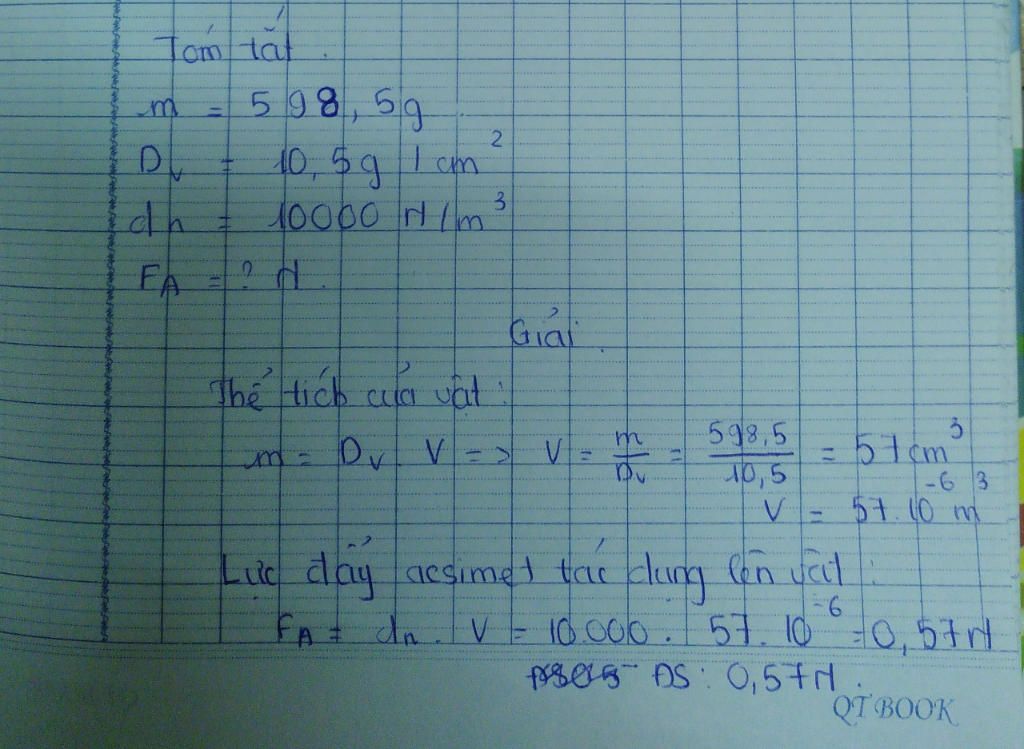 Tóm tắt.
m = 598,5g
Dv = 10,5g/cm²
dn = 10000 N/m³
FA = ? N.
Giải.
Thể tích của vật:
m = Dv. V => V = m/Dv = 598,5/10,5 = 57cm³
V = 57.10⁻⁶ m³
Lực đẩy acsimet tác dụng lên vật:
FA = dn. V = 10.000. 57. 10⁻⁶ = 0,57N
ĐS: 0,57N.
QT BOOK